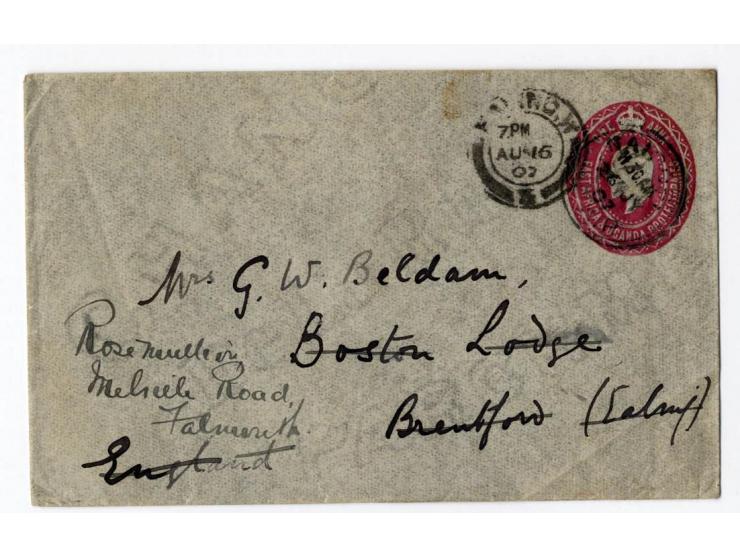 7 PM
AU 16
07
ONE ANNA
EAST AFRICA & UGANDA PROTECTORATES
Mrs G. W. Beldam,
Boston Lodge
Brentford (Ealing)
Rosemullion
Melvill Road,
Falmouth.
England